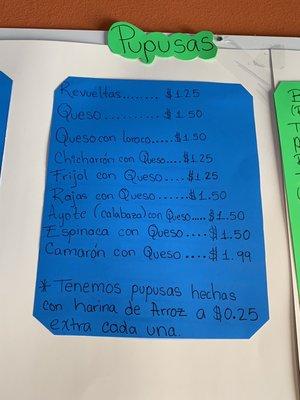 Pupusas
Revueltas......... $1.25
Queso .......... $1.50
Queso con loroco.....$1.50
Chicharón con Queso....$1.25
Frijol con Queso .... $1.25
Rajas con Queso ......$1.50
Ayote (calabaza) con Queso..... $1.50
Espinaca con Queso .... $1.50
Camarón con Queso .... $1.99
* Tenemos pupusas hechas
con harina de Arroz a $0.25
extra cada una.